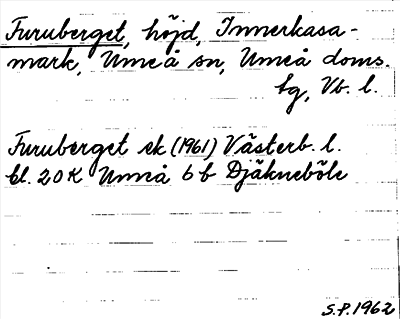 Furuberget, höjd, Innerkasa-
mark, Umeå sn, Umeå doms.
sg, Vb. l.
Furuberget ek (1961) Västerb. l.
bl. 20 K Umeå 6 b Djäkneböle
S.P. 1962